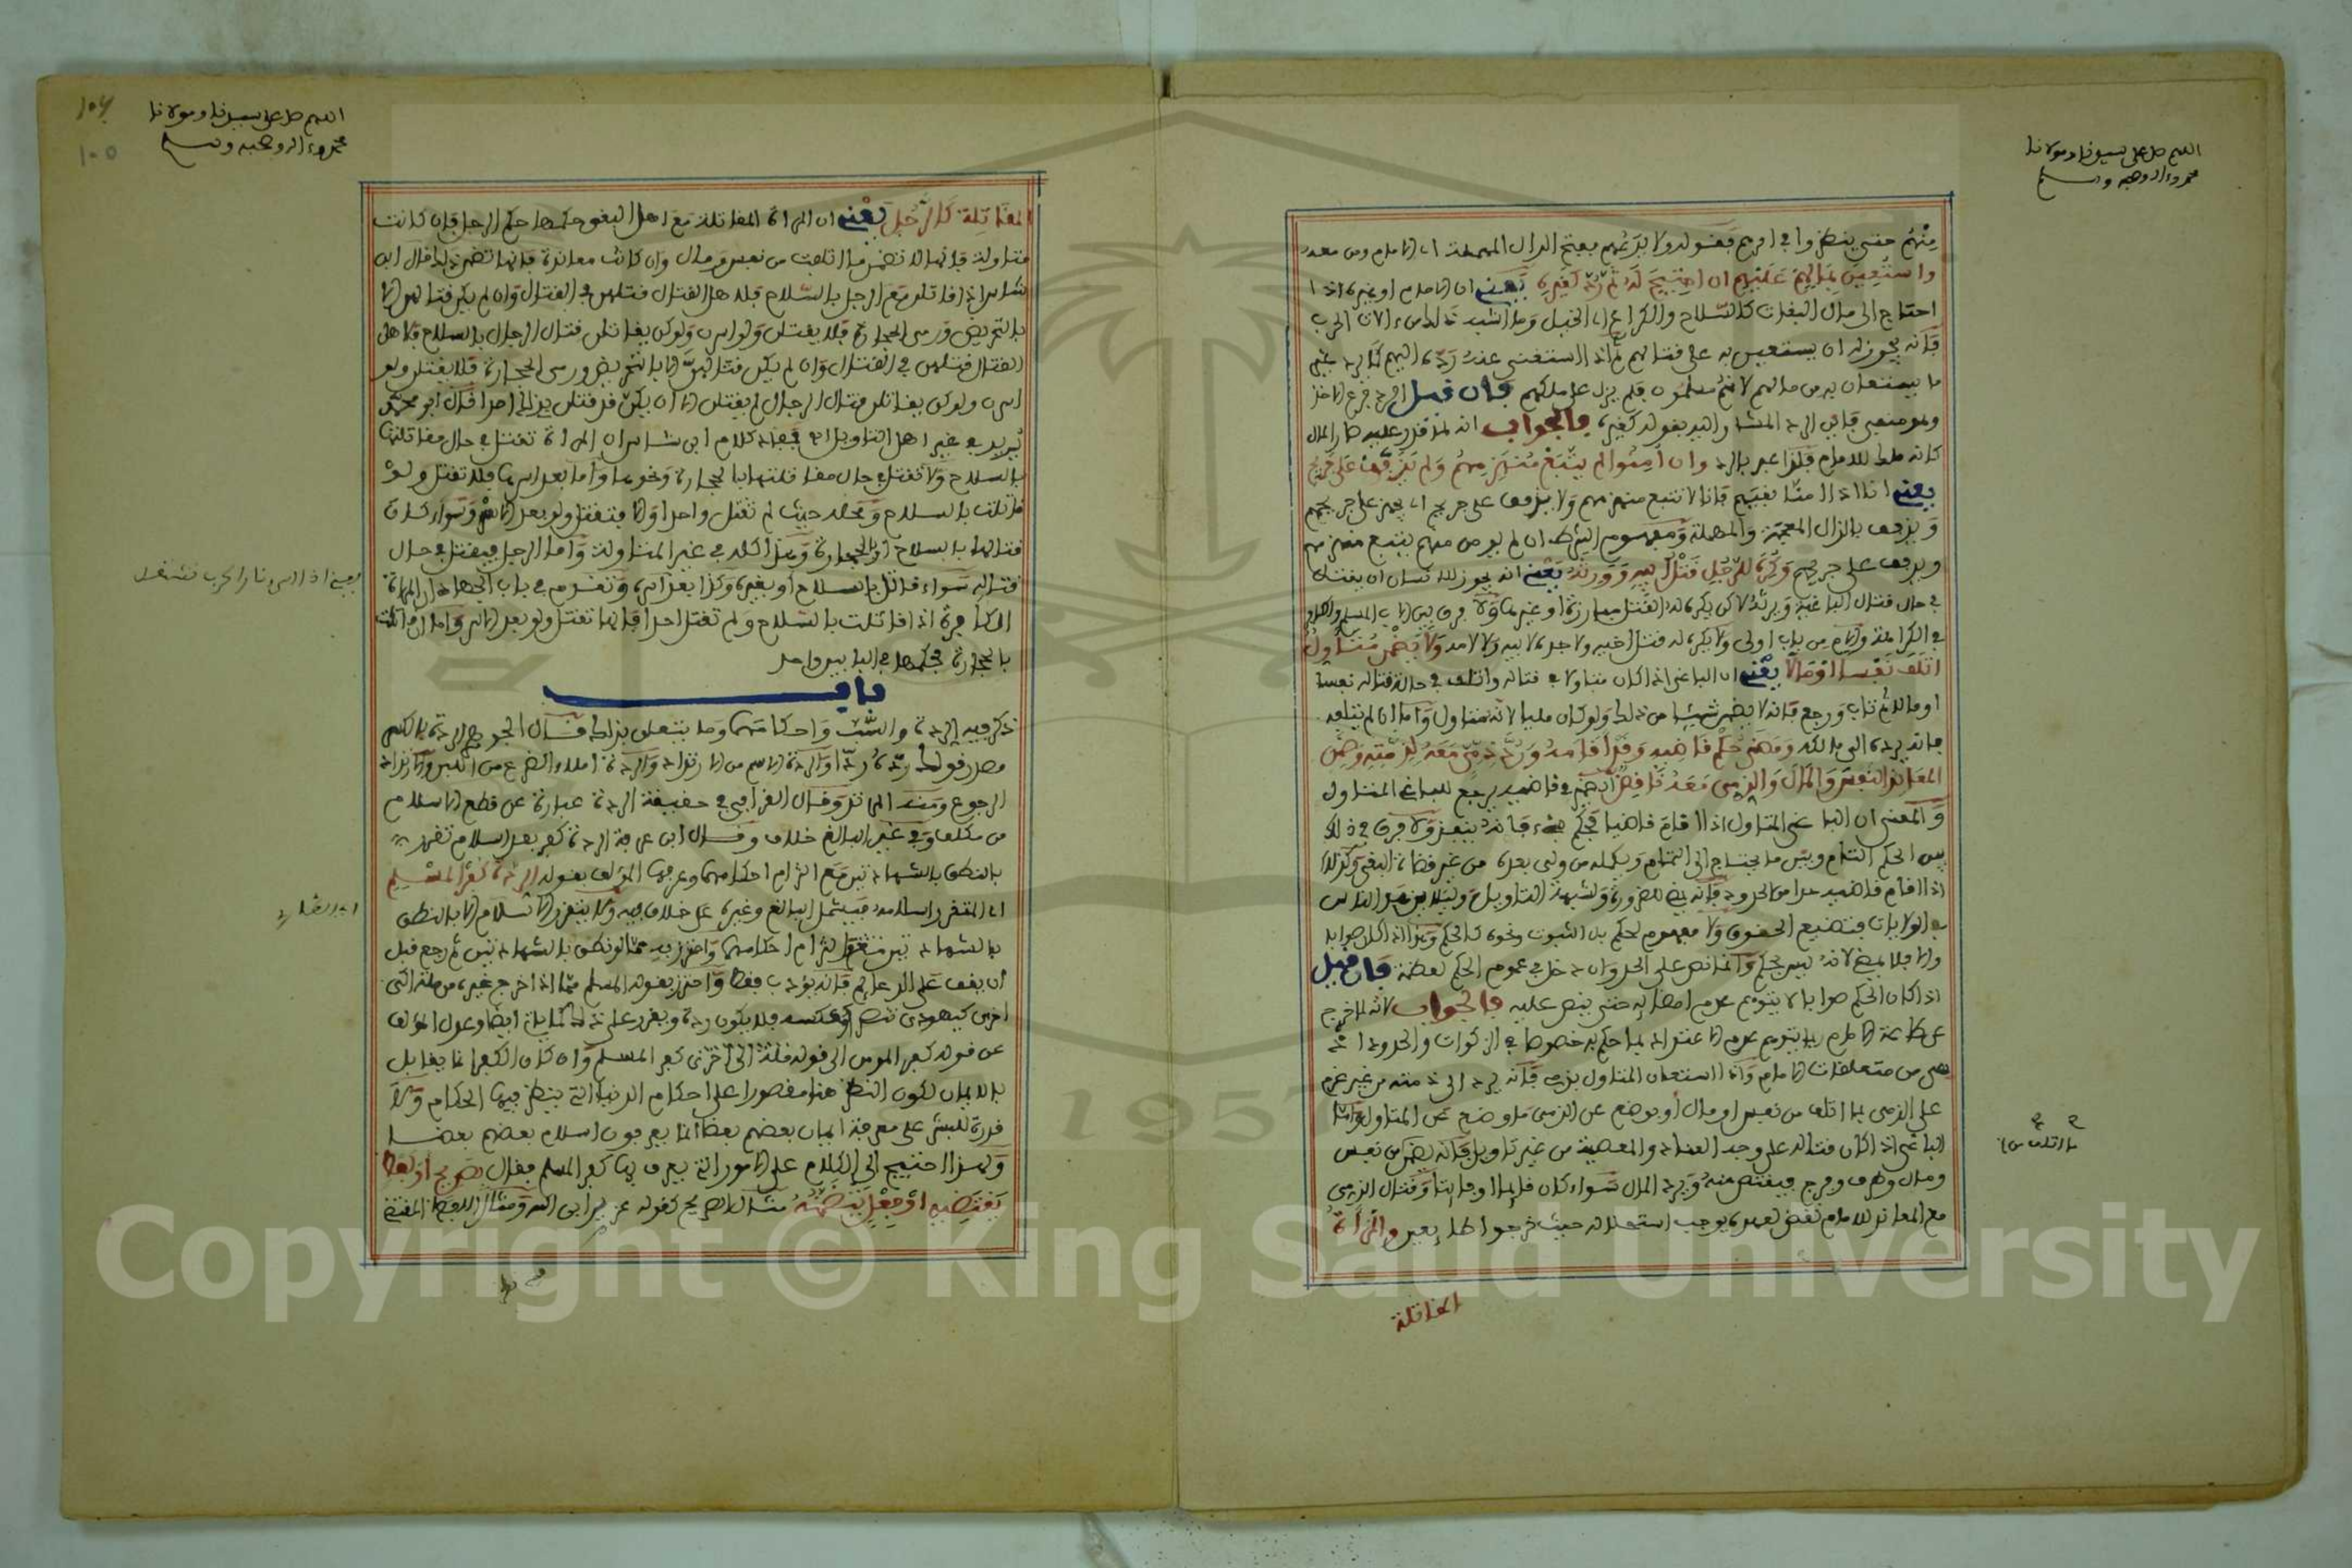 اللهم صل على سيدنا ومولانا
محمد وءاله وصحبه وسلم
منهم حتى ينظروا في امرهم فقوله ولا يدعهم بفتح الدال المهملة اي الامام ومن معه
واستعين بمالهم عليهم ان احتيج له ثم رد كغيره يعني ان الامام او غيره اذا
احتاج الى مال البغات كالسلاح والكراع اي الخيل وما اشبه ذلك من ءالات الحرب
فإنه يجوز له ان يستعين به على قتالهم ثم اذا استغنى عنه رده اليهم كما يرد غير
ما يستعان به من مالهم لانهم مسلمون فلم يزل على ملكهم فإن قيل الرد فرع الاخذ
ولم فاين الرد المشار اليه بقوله كغيره فالجواب انه لما قدر عليه صار المال
كانه ملك للامام فلذا عبر بالرد وان امنوا لم يتبع منهزمهم ولم يذفف على جريحهم
يعني انا اذا امنا بغيهم فإنا لا نتبع منهزمهم ولا يذفف على جريحهم اي يجهز على جريحهم
ويذفف بالذال المعجمة والمهملة ومفهوم الشرط ان لم يومن منهم يتبع منهزمهم
ويذفف على جريحهم وكره للرجل قتل ابيه وورثه يعني انه يجوز للانسان ان يقتل
في حال قتال الباغية ويرثه لاكن يكره له القتل مبارزة او غيرها ولا فرق بين الاب المسلم والكافر
في الكراهة والام من باب اولى ولا يكره له قتل اخيه ولا جده لابيه ولا لامه ولا يضمن متاول
اتلف نفسا او مالا يعني ان الباغي اذا كان متاولا في قتاله واتلف في حالة قتاله نفسا
او مالا ثم تاب ورجع فإنه لا يضمن شيئا من ذلك ولو كان مليا لانه متاول واما ان لم يتلفه
فانه يرده الى مالكه ومضى حكم قاضيه وحد اقامه ورد ذمي معه لذمته وضمن
المعاند النفس والمال والذمي معه ناقض الضمير في قاضيه يرجع للباغي المتاول
والمعنى ان الباغي المتاول اذا اقام قاضيا فحكم بشيء فإنه ينفذ ولا فرق في ذلك
بين الحكم التام وبين ما يحتاج الى التمام ويكمله من ولي بعده من غير قضاة البغي وكذلك
اذا اقام قاضيه حدا من الحدود فإنه يمضي للضرورة ولشبهة التاويل وليلا يزهد الناس
في الولايات فتضيع الحقوق ولا مفهوم لحكم بل الثبوت ونحوه كالحكم وهذا اذا كان صوابا
والا فلا يمضي لانه ليس بحكم وانما نص على الحد وان دخل في عموم الحكم لعظمه فإن قيل
اذا كان الحكم صوابا لا يتوهم عدم امضائه حتى ينص عليه فالجواب لانه لما خرج
عن طاعة الامام ربما يتوهم عدم الاعتداد بما حكم به خصوصا في الزكوات والحدود اذ
هي من متعلقات الامام واذا استعان المتاول بذمي فإنه يرد الى ذمته من غير غرم
على الذمي لما اتلف من نفس او مال او يوضع عن الذمي ما وضع عن المتاول واما
الباغي اذا كان قتاله على وجه العناد والمعصية من غير تاويل فإنه يضمن من نفس
ومال وطرف وفرج فيقتص منه ويرد المال سواء كان قايما او فايتا وقتال الذمي
مع المعاند للامام نقض لعهده يوجب استحلاله حيث خرجوا طايعين والمرأة
المقاتلة
ما اتلف من
اللهم صل على سيدنا ومولانا
محمد وءاله وصحبه وسلم
المقاتلة كالرجل يعني ان المرأة المقاتلة مع اهل البغي حكمها حكم الرجل فإن كانت
متاولة فإنها لا تضمن ما اتلفت من نفس ومال وإن كانت معاندة فإنها تضمن ذلك قال ابن
شاس اذا قاتلن مع الرجال بالسلاح فلاهل القتال قتلهن في القتال وإن لم يكن قتالهن الا
بالتحريض ورمي الحجارة فلا يقتلن ولو اسرن ولو كن يقاتلن قتال الرجال بالسلاح فلاهل
القتال قتلهن في القتال وان لم يكن قتالهن الا بالتحريض ورمي الحجارة فلا يقتلن ولو
اسرن ولو كن يقاتلن قتال الرجال لم يقتلن الا ان يكن قد قتلن يريد احدا قال ابو محمد
يريد في غير اهل التاويل اه فهذا كلام ابن شاس ان المرأة تقتل في حال مقاتلتها
بالسلاح ولا تقتل في حال مقاتلتها بالحجارة ونحوها واما بعد اسرها فلا تقتل ولو
قاتلت بالسلاح ومحله حيث لم تقتل واحدا والا فتقتل ولو بعد الاسر وسواء كان
قتالها بالسلاح او بالحجارة وهذا كله في غير المتاولة واما الرجل فيقتل في حال
قتاله سواء قاتل بالسلاح او بغيره وكذا بعد اسره وتقدم في باب الجهاد ان المرأة
الكافرة اذا قاتلت بالسلاح ولم تقتل احدا فإنها تقتل ولو بعد الاسر واما ان قاتلت
بالحجارة فحكمها في البابين واحد
باب
ذكر فيه الردة والسب واحكامهما وما يتعلق بذلك قال الجوهري الردة بالكسر
مصدر قولك رده ردا وردة والردة الاسم من الارتداد والردة امتلاء الضرع من اللبن والارتداد
الرجوع ومنه المرتد وقال القرافي حقيقة الردة عبارة عن قطع الاسلام
من مكلف وفي غير البالغ خلاف وقال ابن عرفة الردة كفر بعد اسلام تقرر
بالنطق بالشهادتين مع التزام احكامهما وعرفها المؤلف بقوله الردة كفر المسلم
اي المتقرر اسلامه فيشمل البالغ وغيره على خلاف فيه ولا يتقرر الاسلام الا بالنطق
بالشهادتين ملتزما احكامهما واحترز به مما لو نطق بالشهادتين ثم رجع قبل
ان يقف على الدعايم فإنه يؤدب فقط واحترز بقوله المسلم مما اذا خرج غيره من ملة الى
اخرى كيهودي تنصر او عكسه فلا يكون ردة ويقرر على ذلك كما ياتي ايضا وعدل المؤلف
عن قوله كفر المومن الى قوله كفر المسلم وان كان الكفر انما يقابل
بالايمان لكون النظر هنا مقصورا على احكام الدنيا التي ينظر فيها الحكام ولا
قدرة للبشر على معرفة ايمان بعضهم بعضا انما يعرفون اسلام بعضهم بعضا
ولهذا احتيج الى الكلام على الامور التي يعرف بها كفر المسلم فقال بصريح او لفظ
يقتضيه او فعل يتضمنه مثال الصريح كقوله عزير ابن الله ومثال اللفظ المقتضي
Copyright © King Saud University
1957